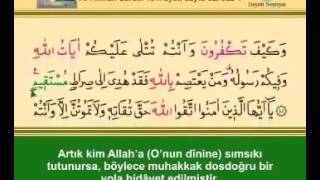 وَكَيْفَ تَكْفُرُونَ وَاَنْتُمْ تُتْلٰى عَلَيْكُمْ اٰيَاتُ اللّٰهِ
وَفٖيكُمْ رَسُولُهُ وَمَنْ يَعْتَصِمْ بِاللّٰهِ فَقَدْ هُدِىَ اِلٰى صِرَاطٍ مُسْتَقٖيمٍ
يَٓا اَيُّهَا الَّذٖينَ اٰمَنُوا اتَّقُوا اللّٰهَ حَقَّ تُقَاتِهٖ وَلَا تَمُوتُنَّ اِلَّا وَاَنْتُمْ
Artık kim Allah'a (O'nun dînine) sımsıkı
tutunursa, böylece muhakkak dosdoğru bir
yola hidâyet edilmiştir